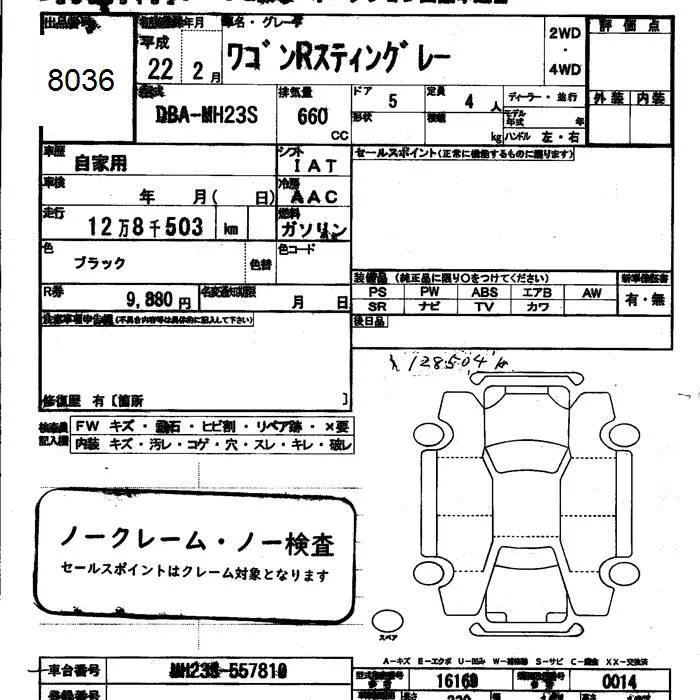 出品番号
8036
初度登録年月
平成
22年 2月
車名・グレード
ワゴンRスティングレー
2WD
・
4WD
評価点
外装 内装
型式
DBA-MH23S
排気量
660
CC
ドア
5
定員
4人
ディーラー・並行
形状
積載
kg
モデル年式 年
ハンドル 左・右
車歴
自家用
シフト
IAT
車検
年 月( 日)
冷房
AAC
走行
12万8千503 km
燃料
ガソリン
色
ブラック
色替
色コード
R券
9,880円
名変通知期限
月 日
セールスポイント(正常に機能するものに限ります)
装備品 (純正品に限り○をつけてください)
PS PW ABS エアB AW
SR ナビ TV カワ
新車保証書
有・無
後日品
注意事項申告欄(不具合内容等は具体的に記入して下さい)
修復歴 有〔箇所 〕
検査員記入欄
FW キズ・飛石・ヒビ割・リペア跡・×要
内装 キズ・汚レ・コゲ・穴・スレ・キレ・破レ
128504 k
ノークレーム・ノー検査
セールスポイントはクレーム対象となります
スペア
A-キズ E-エクボ U-凹み W-補修跡 S-サビ C-腐食 XX-交換済
車台番号
MH23S-557810
型式指定番号
16160
類別区分番号
0014
登録番号